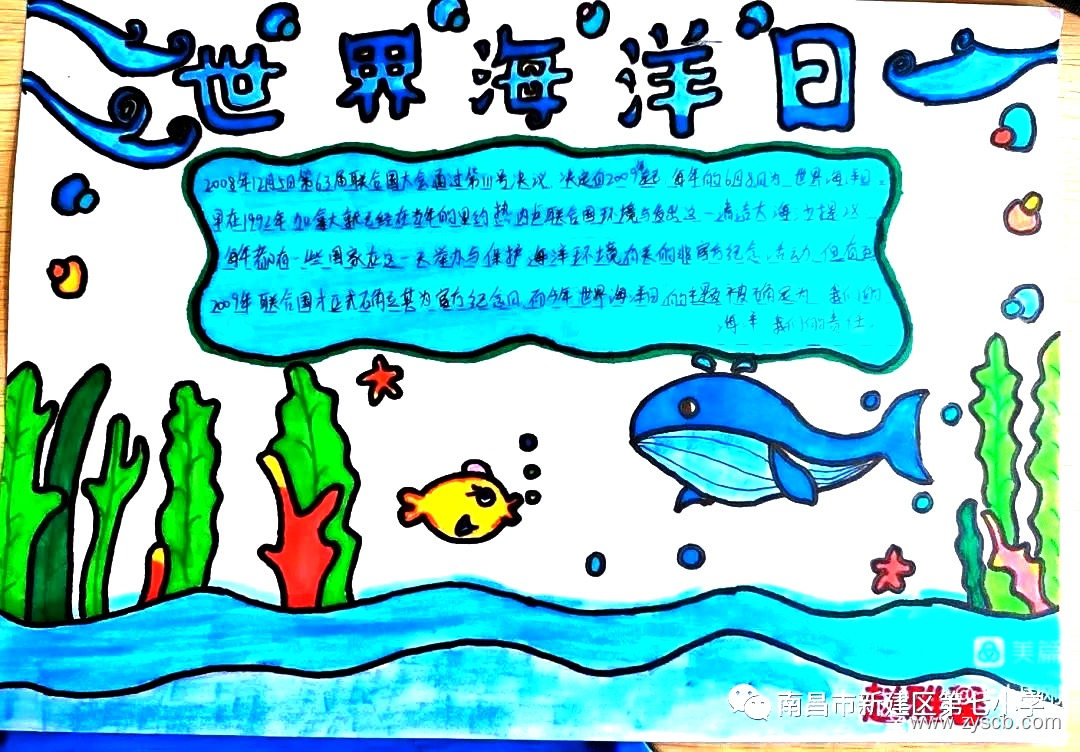 世界海洋日
2008年12月5日第63届联合国大会通过第111号决议,决定自2009年起,每年的6月8日为"世界海洋日"。
早在1992年加拿大就已经在当年的里约热内卢联合国环境与发展这一
每年都有一些国家在这一天举办与保护海洋环境有关的非官方纪念活动,但直至
2009年联合国才正式确立其为官方纪念日,而今年世界海洋日的主题被确定为"我们的
海洋 我们的责任
美篇
南昌市新建区第七小学
www.zyscb.com